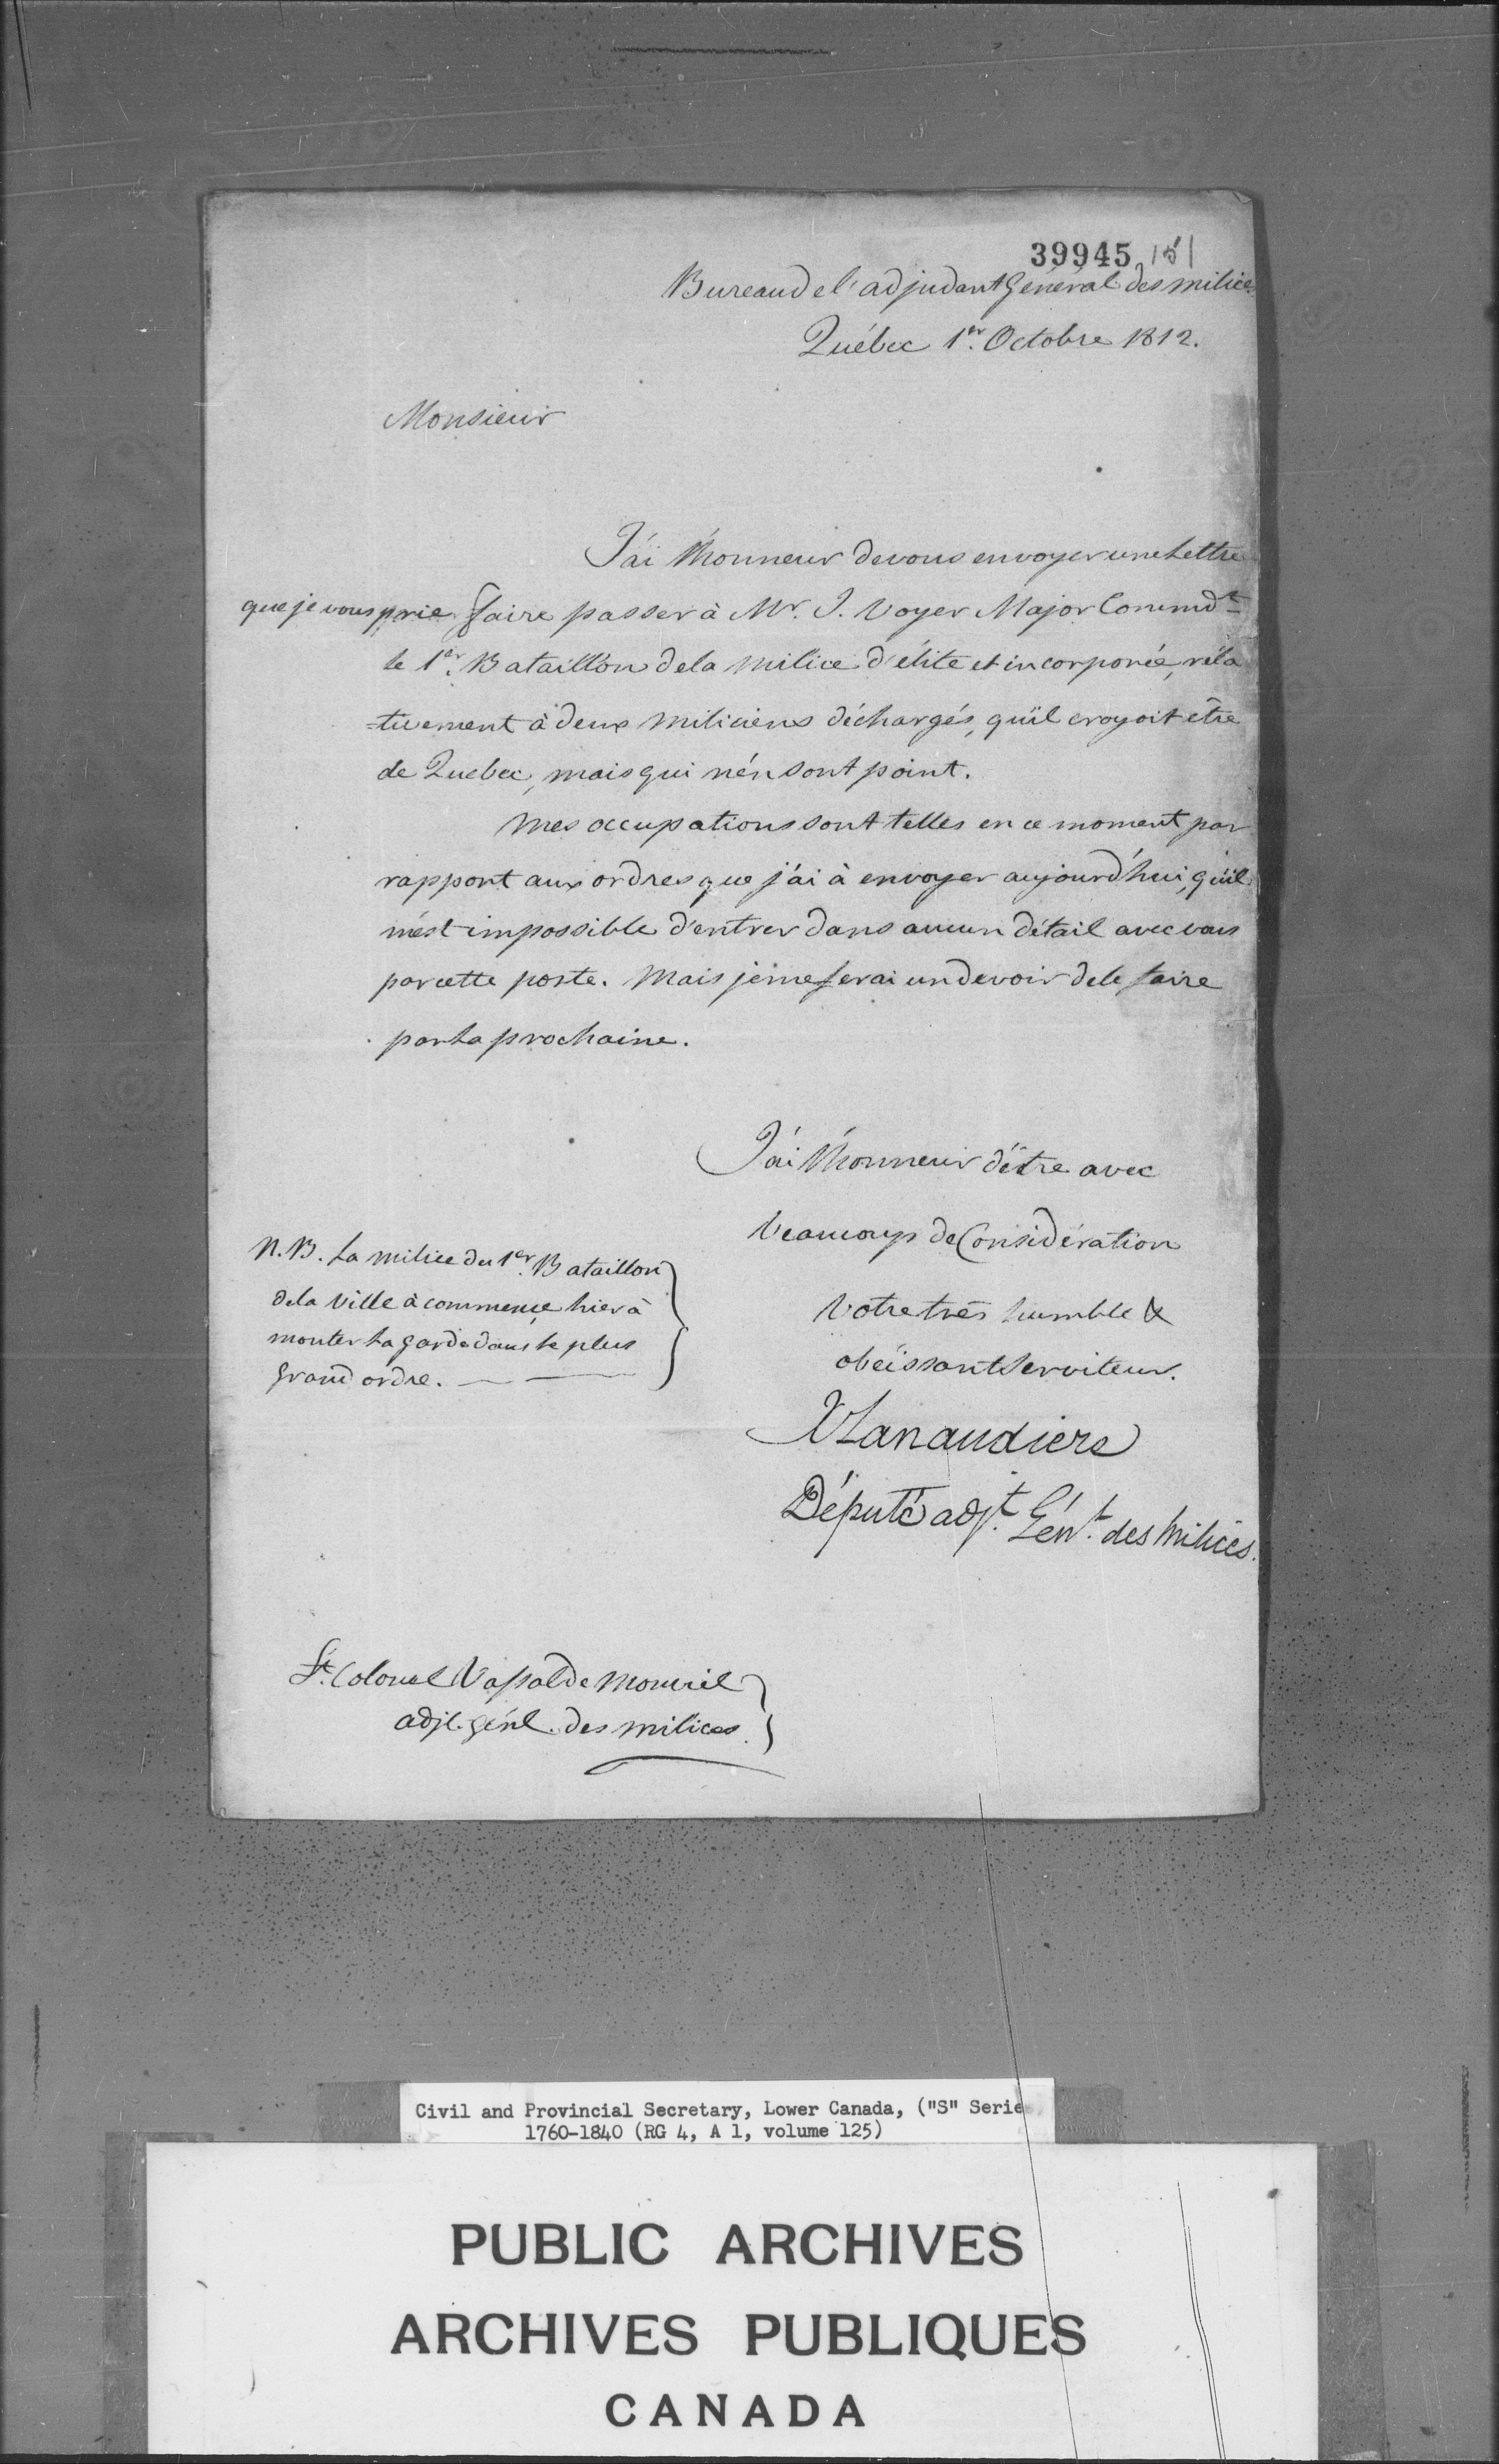 39945 151
Bureau de l'adjudant Général des milices
Québec 1er. Octobre 1812.
Monsieur
J'ai l'honneur de vous envoyer une Lettre
que je vous prie faire passer à Mr. J. Voyer Major Commdt
le 1er. Bataillon de la Milice d'élite et incorporée, réla
=tivement à deux Miliciens déchargés, qu'il croyoit être
de Quebec, mais qui n'en sont point.
Mes occupations sont telles en ce moment par
rapport aux ordres que j'ai à envoyer aujourd'hui, qu'il
m'est impossible d'entrer dans aucun détail avec vous
par cette poste. Mais je me ferai un devoir de le faire
par la prochaine.
J'ai l'honneur d'être avec
beaucoup de Considération
Votre très humble &
obéissant Serviteur.
X Lanaudiere
Député adjt. Génl. des Milices.
N.B. La milice du 1er. Bataillon
de la Ville à commençe hier à
monter la garde dans le plus
grand ordre.
Lt. Colonel Vassal de Monviel
adjt. Génl. des milices.
Civil and Provincial Secretary, Lower Canada, ("S" Series
1760-1840 (RG 4, A 1, volume 125)
PUBLIC ARCHIVES
ARCHIVES PUBLIQUES
CANADA